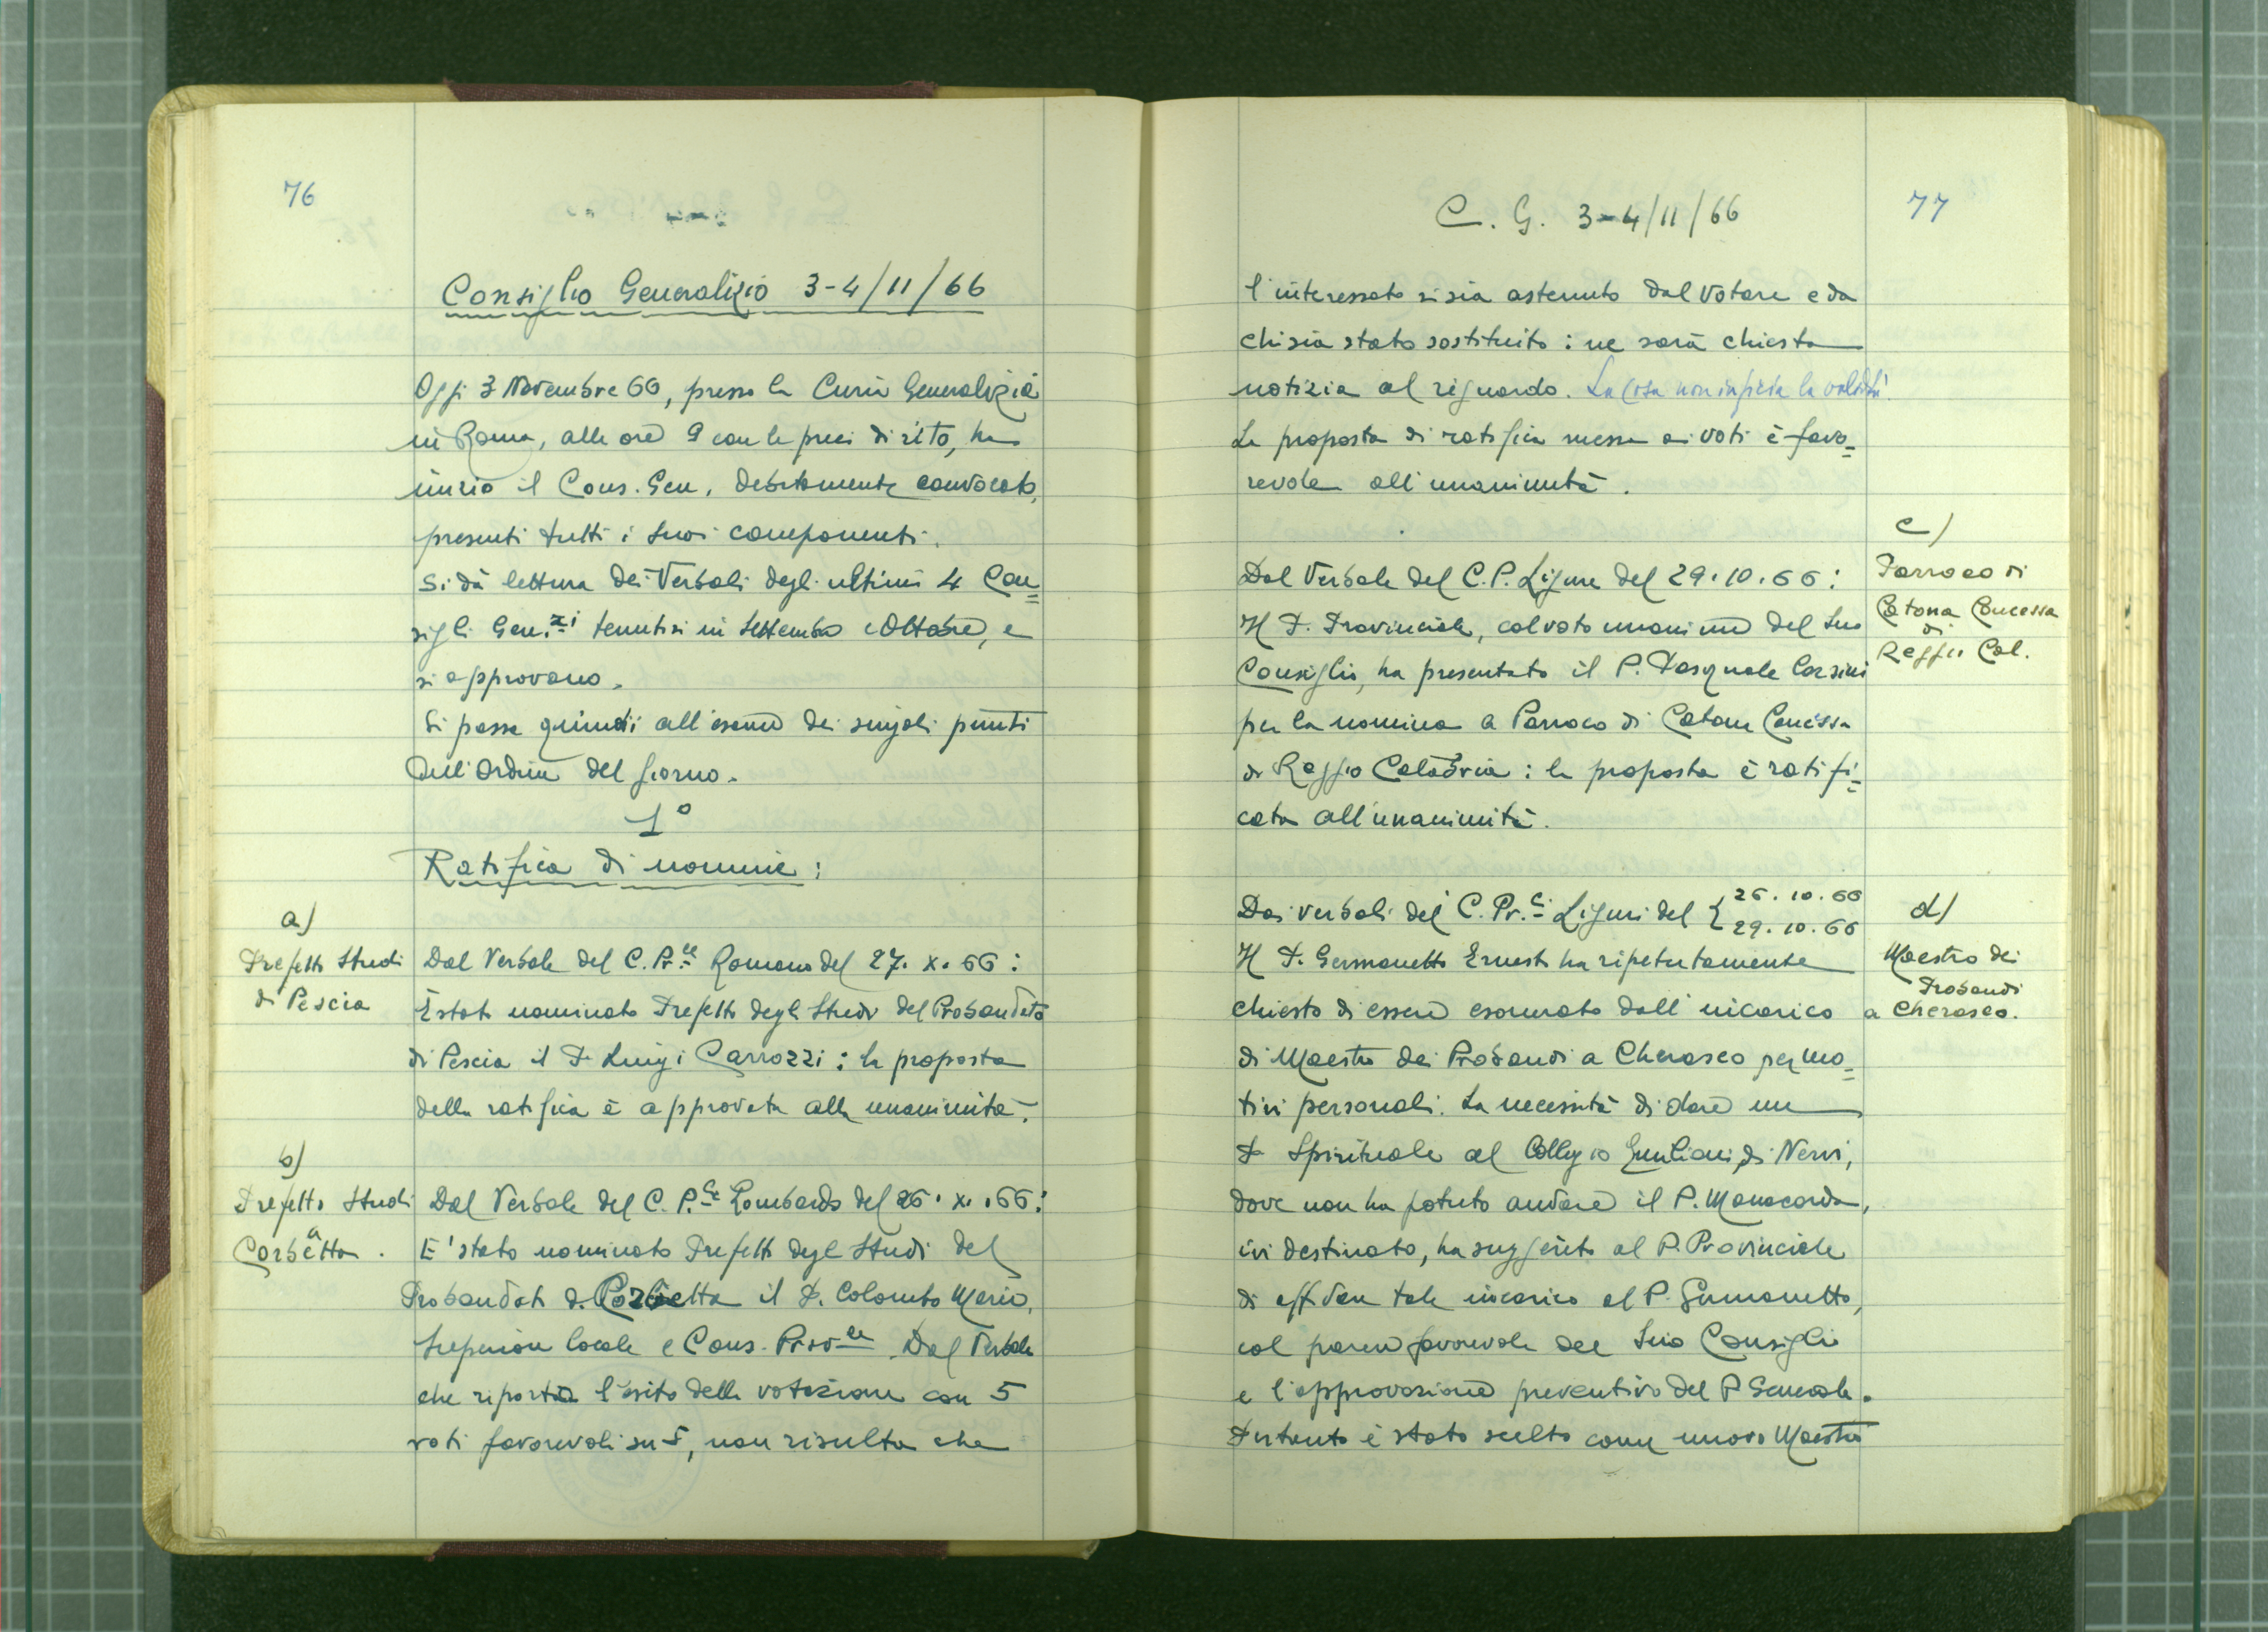 76
Consiglio Generalizio 3-4/11/66
Oggi 3 Novembre 66, presso la Curia Generalizia
in Roma, alle ore 9 con le preci di rito, ha
inizio il Cons. Gen. debitamente convocato,
presenti tutti i suoi componenti.
Si dà lettura dei Verbali degli ultimi 4 Con=
sigli Gen.zi tenutisi in Settembre e Ottobre, e
si approvano.
Si passa quindi all'esame dei singoli punti
dell'Ordine del giorno.
1°
Ratifica di nomine:
a)
Prefetto Studi
di Pescia
Dal Verbale del C. Pr.le Romano del 27. X. 66:
È stato nominato Prefetto degli Studi del Probandato
di Pescia il P. Luigi Carrozzi: la proposta
della ratifica è approvata alla unanimità.
b)
Prefetto Studi
a
Corbetta.
Dal Verbale del C. P.le Lombardo del 26. X. 66:
E' stato nominato Prefetto degli Studi del
Probandato di Corbetta il P. Colombo Mario,
Superiore locale e Cons. Prov.le. Dal Verbale
che riporta l'esito della votazione con 5
voti favorevoli su 5, non risulta che
C. G. 3-4/11/66
77
l'interessato si sia astenuto dal votare e da
chi sia stato sostituito: ne sarà chiesta
notizia al riguardo. La cosa non inficia la validità
La proposta di ratifica messa ai voti è favo=
revole all'unanimità.
c)
Parroco di
Catona Concessa
di
Reggio Cal.
Dal Verbale del C. P. Ligure del 29.10.66:
Il P. Provinciale, col voto unanime del suo
Consiglio, ha presentato il P. Pasquale Corsini
per la nomina a Parroco di Catona Concessa
di Reggio Calabria: la proposta è ratifi=
cata all'unanimità.
d)
Maestro dei
Probandi
a Cherasco.
Dai verbali dei C. Pr.li Liguri del { 26.10.66
29.10.66
Il P. Germanetto Ernesto ha ripetutamente
chiesto di essere esonerato dall'incarico
di Maestro dei Probandi a Cherasco per mo=
tivi personali. La necessità di dare un
P. Spirituale al Collegio Emiliani di Nervi,
dove non ha potuto andare il P. Manacorda,
ivi destinato, ha suggerito al P. Provinciale
di affidare tale incarico al P. Germanetto,
col parere favorevole del suo Consiglio
e l'approvazione preventiva del P. Generale.
Pertanto è stato scelto come nuovo Maestro